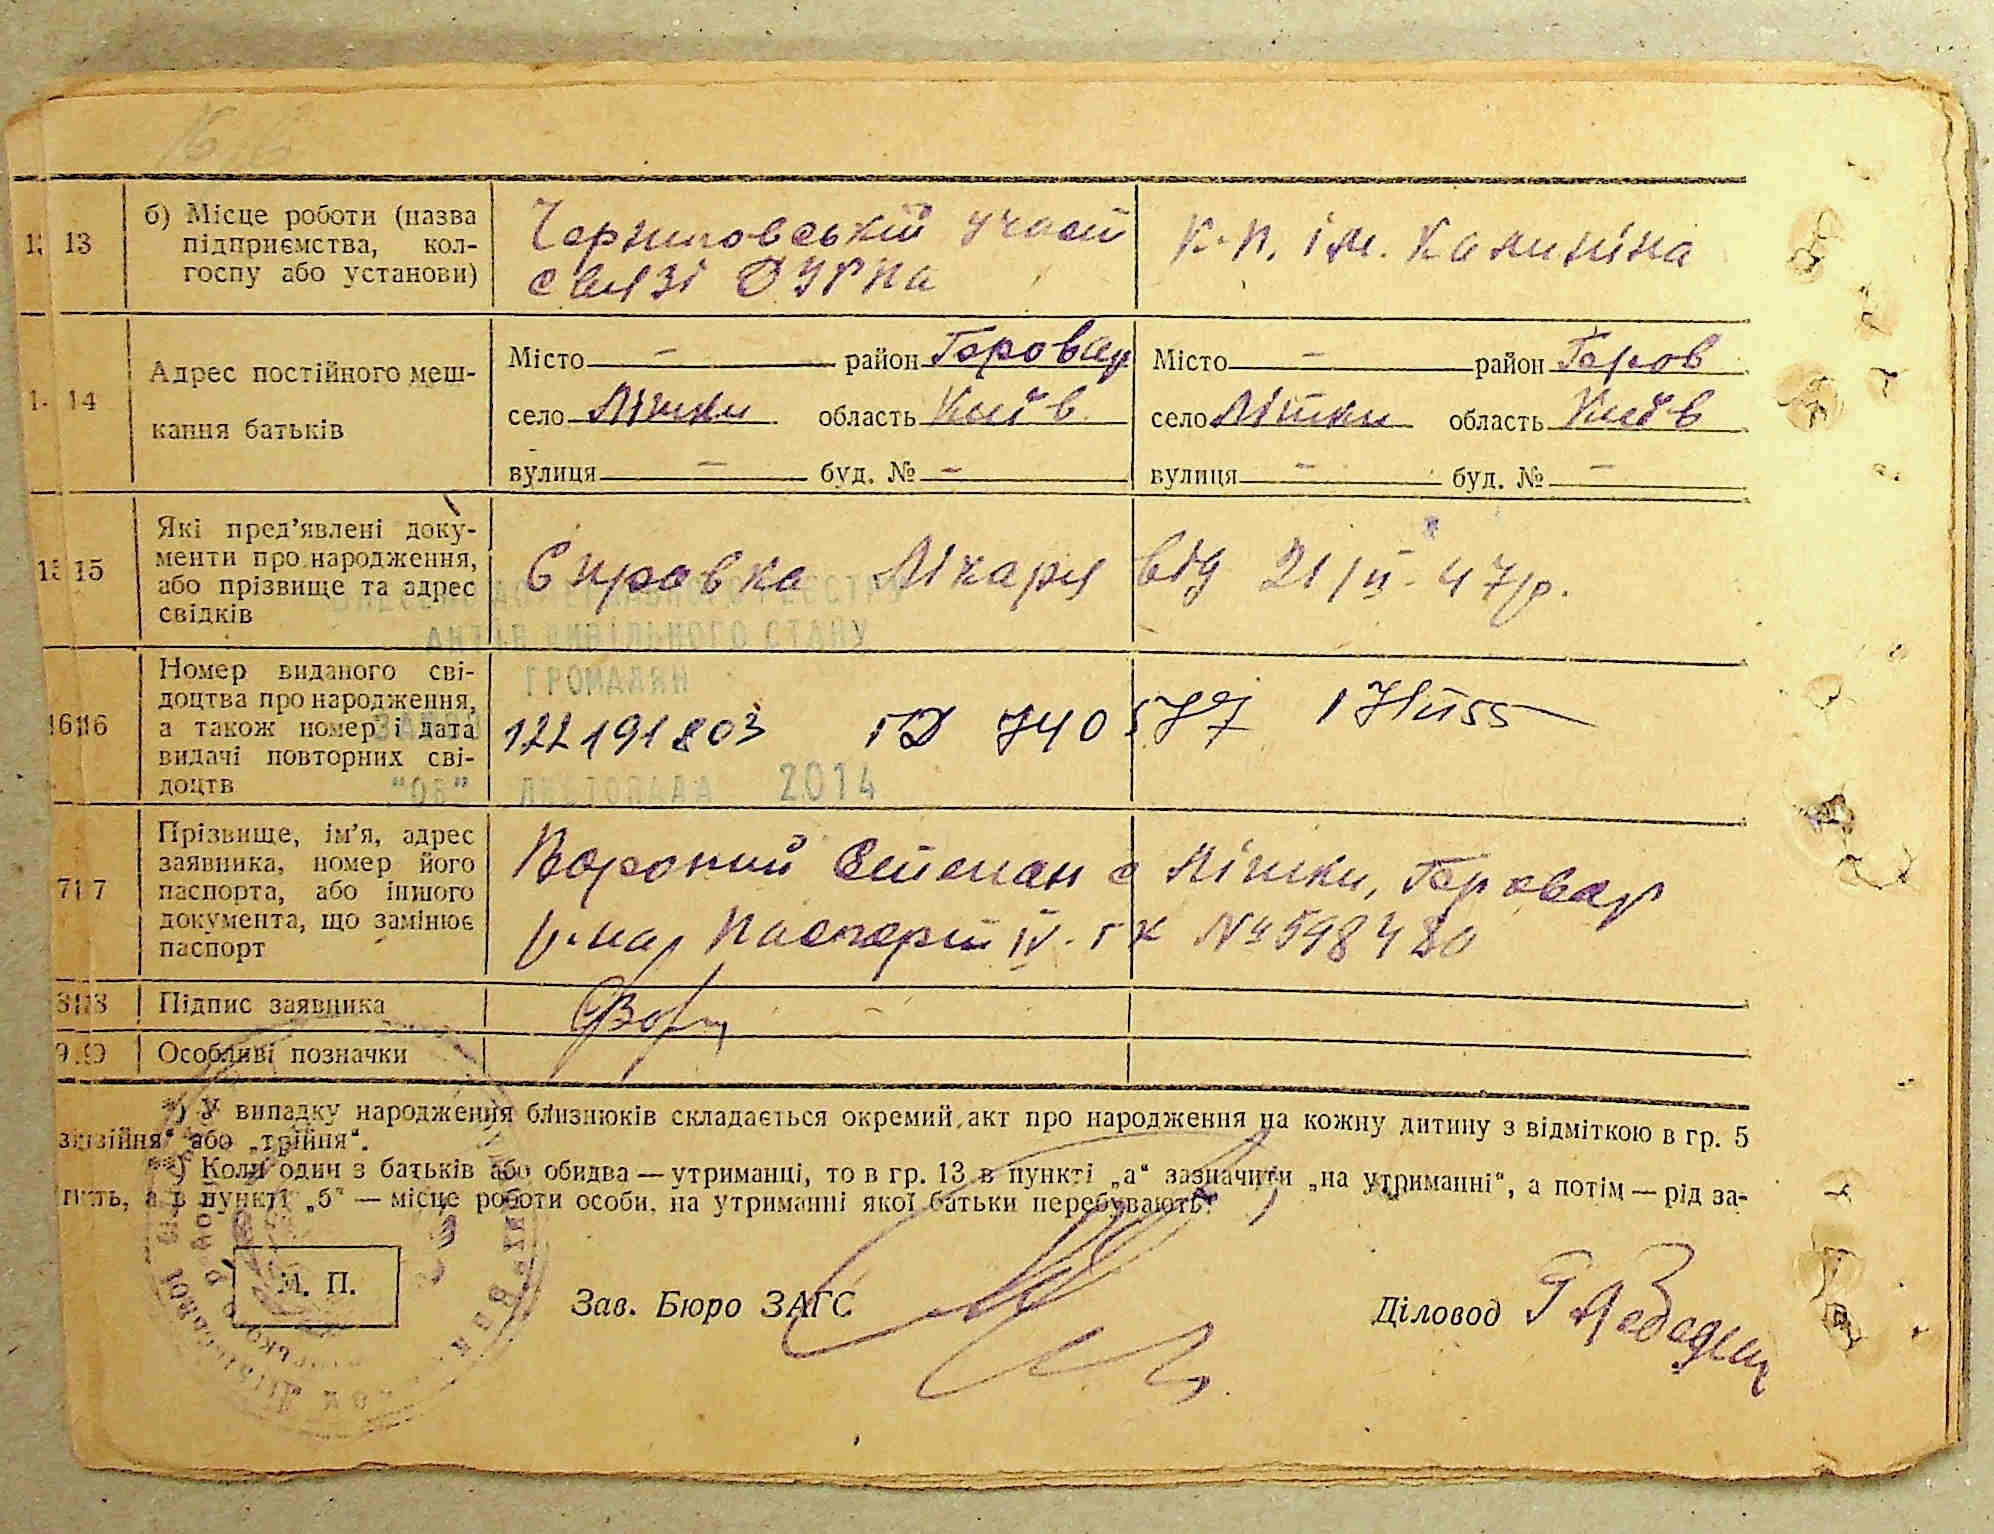 13 б) Місце роботи (назва
підприємства, кол-
госпу або установи)
участ
звязі
к-п. ім. Калиніна
14 Адрес постійного меш-
кання батьків
Місто – район Бровар
село Літки область Київ
вулиця – буд. № –
Місто – район Бров
село Літки область Київ
вулиця – буд. № –
15 Які пред’явлені доку-
менти про народження,
або прізвище та адрес
свідків
Справка Лікаря від 21/II-47р.
АКТІВ ЦИВІЛЬНОГО СТАНУ
ГРОМАДЯН
16 Номер виданого сві-
доцтва про народження,
а також номер і дата
видачі повторних сві-
доцтв
122191803
"06" ЛИСТОПАДА 2014
17 Прізвище, ім’я, адрес
заявника, номер його
паспорта, або іншого
документа, що замінює
паспорт
Вороний Степан с Літки, Бровар
р-на, Паспорт IV-ГК №598480
18 Підпис заявника
19 Особливі позначки
*) У випадку народження близнюків складається окремий акт про народження на кожну дитину з відміткою в гр. 5
або „трійня“.
Коли один з батьків або обидва — утриманці, то в гр. 13 в пункті „а“ зазначити „на утриманні“, а потім — рід за-
а в пункті „б“ — місце роботи особи, на утриманні якої батьки перебувають.
М. П.
Зав. Бюро ЗАГС
Діловод